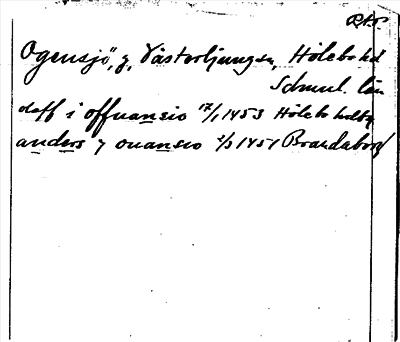 RAP.
Ogensjö, g, Västerljungsn, Hölebo hd
Södml. län
deff i offuansio 17/1 1453 Hölebo hdbr
anders j ouansio 2/3 1451 Brandaborg